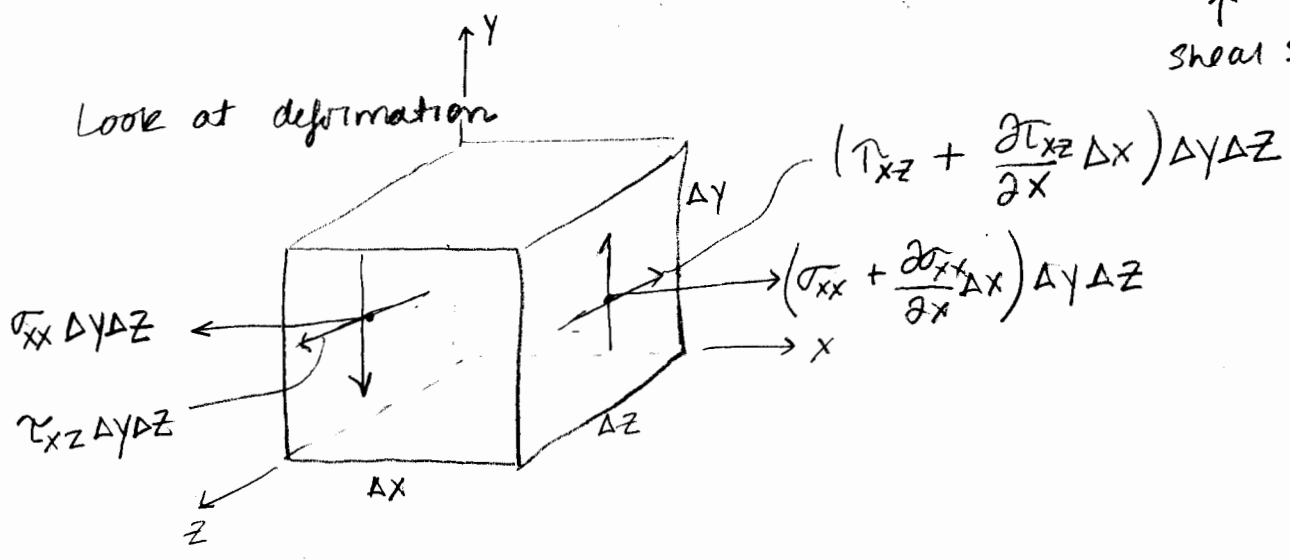 ↑
shear
Y
Look at deformation
(τ_xz + ∂τ_xz/∂x Δx) ΔyΔz
Δy
(σ_xx + ∂σ_xx/∂x Δx) Δy Δz
σ_xx ΔyΔz
x
τ_xz ΔyΔz
Δz
Δx
z